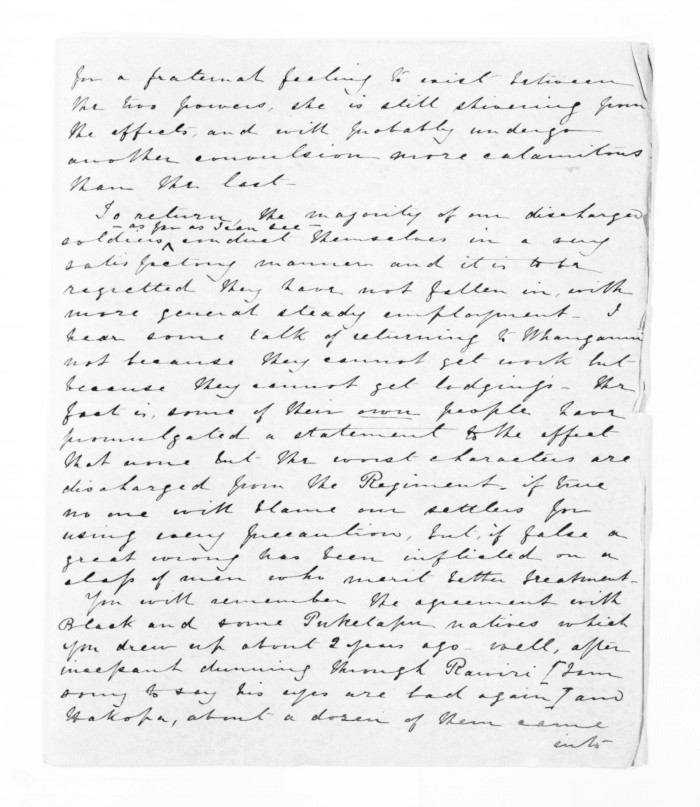 for a fraternal feeling to exist between
the two powers, she is still shivering from
the effects, and will probably undergo
another convulsion more calamitous
than the last -
To return, the majority of our discharged
- as far as I can see -
soldiers ^ conduct themselves in a very
satisfactory manner and it is to be
regretted they have not fallen in, with
more general steady employment - I
hear some talk of returning to Whanganui
not because they cannot get work but
because they cannot get lodgings - The
fact is, some of their own people have
promulgated a statement to the effect
that none but the worst characters are
discharged from the Regiment - if true
no one will blame our settlers for
using every precaution, but, if false a
great wrong has been inflicted on a
class of men who merit better treatment -
You will remember the agreement with
Black and some Puketapu natives which
you drew up about 2 years ago - well, after
incessant dunning through Rawiri [I am
sorry to say his eyes are bad again] and
Hakopa, about a dozen of them came
into